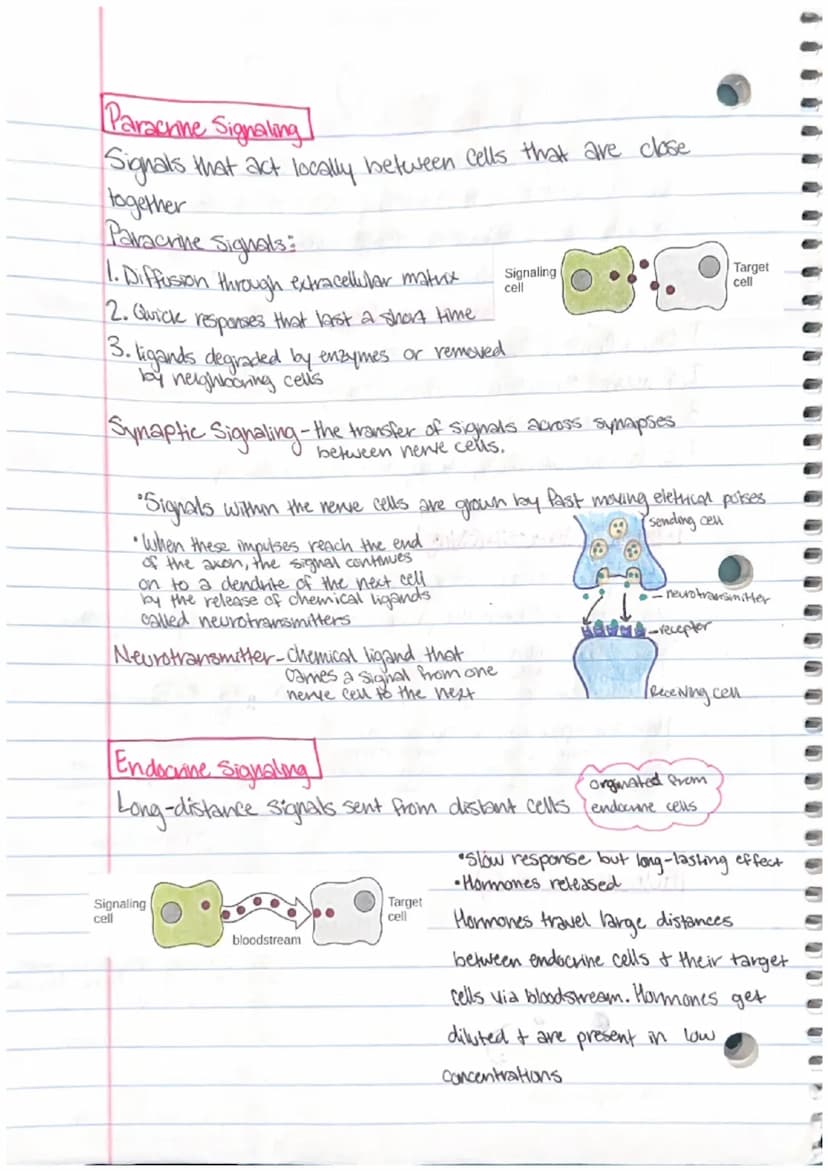 Paracrine Signaling
Signals that act locally between cells that are close
together
Paracrine Signals:
1. Diffusion through extracellular matrix
2. Quick responses that last a short time
3. ligands degraded by enzymes or removed
by neighboring cells
Signaling
cell
Target
cell
Synaptic Signaling - the transfer of signals across synapses
between nerve cells.
•Signals within the nerve cells are grown by fast moving eletrical pulses
•When these impulses reach the end
of the axon, the signal continues
on to a dendrite of the next cell
by the release of chemical ligands
called neurotransmitters
sending cell
neurotransmitter
receptor
Receiving cell
Neurotransmitter - chemical ligand that
carries a signal from one
nerve cell to the next
Endocrine Signaling
Long-distance signals sent from distant cells
orginated from
endocrine cells
Signaling
cell
bloodstream
Target
cell
•Slow response but long-lasting effect
•Hormones released
Hormones travel large distances
between endocrine cells & their target
cells via bloodstream. Hormones get
diluted & are present in low
concentrations